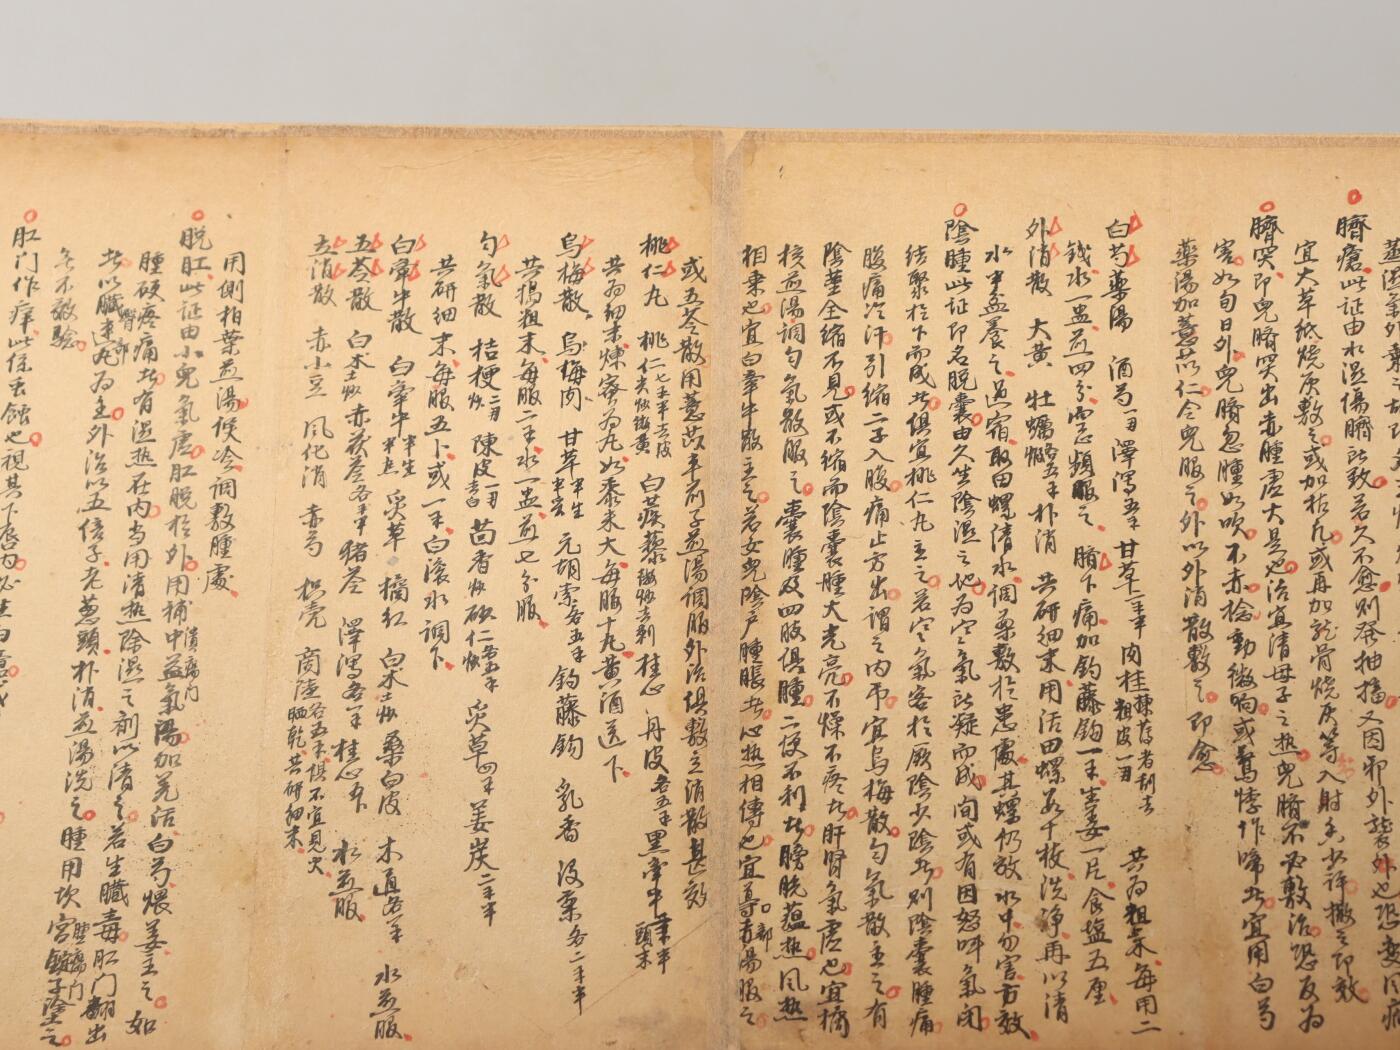 臍瘡此証由水湿傷臍所致若久不愈則發抽搐又因邪外襲外也恐变风病
宜大草紙燒灰敷之或加枯凡或再加龙骨燒灰等入射香少許撒之即效
臍突即兒臍突出赤腫虚大是也治宜清母子之热兒臍不必敷治恐反为
害如旬日外兒臍忽腫如吹不赤捻動微响或驚悸作啼者宜用白芍
藥湯加薏苡仁令兒服之外以外消散敷之即愈
白芍藥湯 酒芍一錢 澤瀉五分 甘草二分半 肉桂 粗皮 共为粗末每用二
錢水一盅煎四分空心頻服之 臍下痛加鈎藤鈎一分生姜一片食塩五厘
外消散 大黄 牡蠣 朴消 共研細末用活田螺数十枚洗净再以清
水中盆養之過宿取田螺清水調藥敷於患處其螺仍放水中勿害方效
陰腫此証即名脱囊由久坐陰湿之地为风氣所凝而成间或有因怒呌氣闭
结聚於下而成者俱宜桃仁丸主之若风氣客於厥陰少陰者則陰囊腫痛
腹痛冷汗引縮二子入腹痛止方出謂之内吊宜烏梅散匀氣散主之有
陰莖全縮不見或不縮而陰囊腫大光亮不燥不疼者肝肾氣虚也宜橘
核煎湯調匀氣散服之囊腫及四肢俱腫二便不利者膀胱蘊热风热
相乗也宜白牽牛散主之若女兒陰户腫脹者心热相傳也宜導赤湯服之
或五苓散用薏苡車前子煎湯調服外治俱敷立消散甚效
桃仁丸 桃仁 白蒺藜 桂心 丹皮各五分 黑牽牛 頭末
共为細末煉蜜为丸如黍米大每服十丸黄酒送下
烏梅散 烏梅肉 甘草半生半炙 元胡索各五分 鈎藤鈎 乳香 没藥各二分半
共搗粗末每服二分水一盅煎七分服
匀氣散 桔梗二錢炒 陳皮一錢去白 茴香炒 砂仁 炙草四分 姜炭二分半
共研細末每服五卜或一分白滚水調下
白牽牛散 白牽牛半生半炒 炙草 橘红 白朮土炒 桑白皮 木通各一分 水煎服
五苓散 白朮土炒 赤茯苓各一分半 豬苓 澤瀉各一分 桂心五卜 水煎服
立消散 赤小豆 风化消 赤芍 枳壳 商陸各五分俱不宜見火晒乾共研細末
用側柏葉煎湯候冷調敷腫處
脱肛此証由小兒氣虚肛脱於外用補中益氣湯加羌活白芍煨姜主之如
腫硬疼痛者有湿热在内当用清热除湿之剂以清之若生臟毒肛门翻出
者以臟連丸为主外治以五倍子老葱頭朴消煎湯洗之腫用坎宫錠子塗之
无不效驗
肛门作痒此係虫蝕也視其下唇内必生白瘡